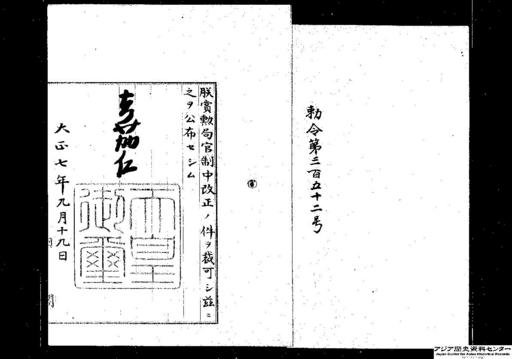 勅令第三百五十二号
朕賞勲局官制中改正ノ件ヲ裁可シ茲ニ
之ヲ公布セシム
嘉仁
天皇御璽
大正七年九月十九日
アジア歴史資料センター
Japan Center for Asian Historical Records